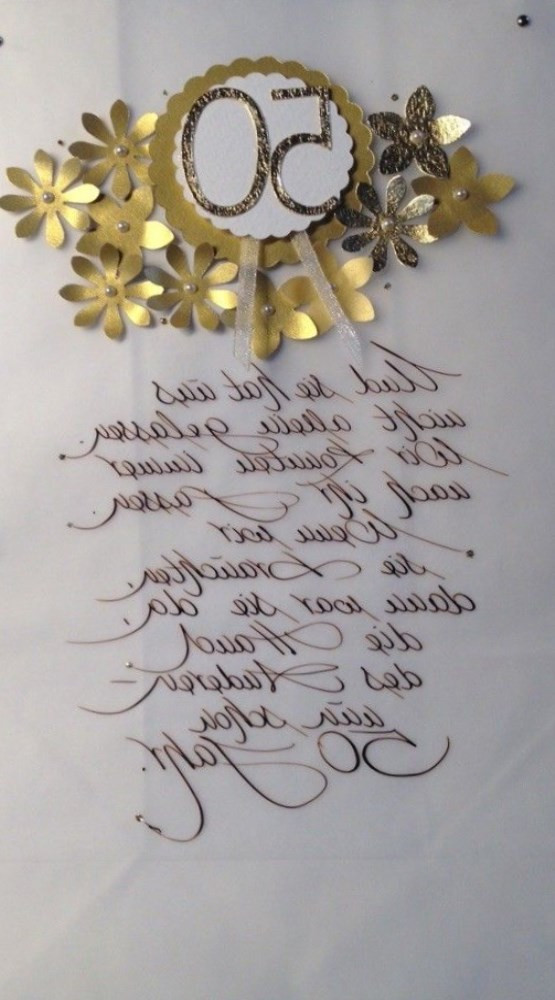 50
Und sie hat uns
nicht allein gelassen,
Wir konnten immer
nach ihr fassen
Wenn wir
sie brauchten,
dann war sie da:
die Hand
des Anderen –
nun schon
50 Jahr.